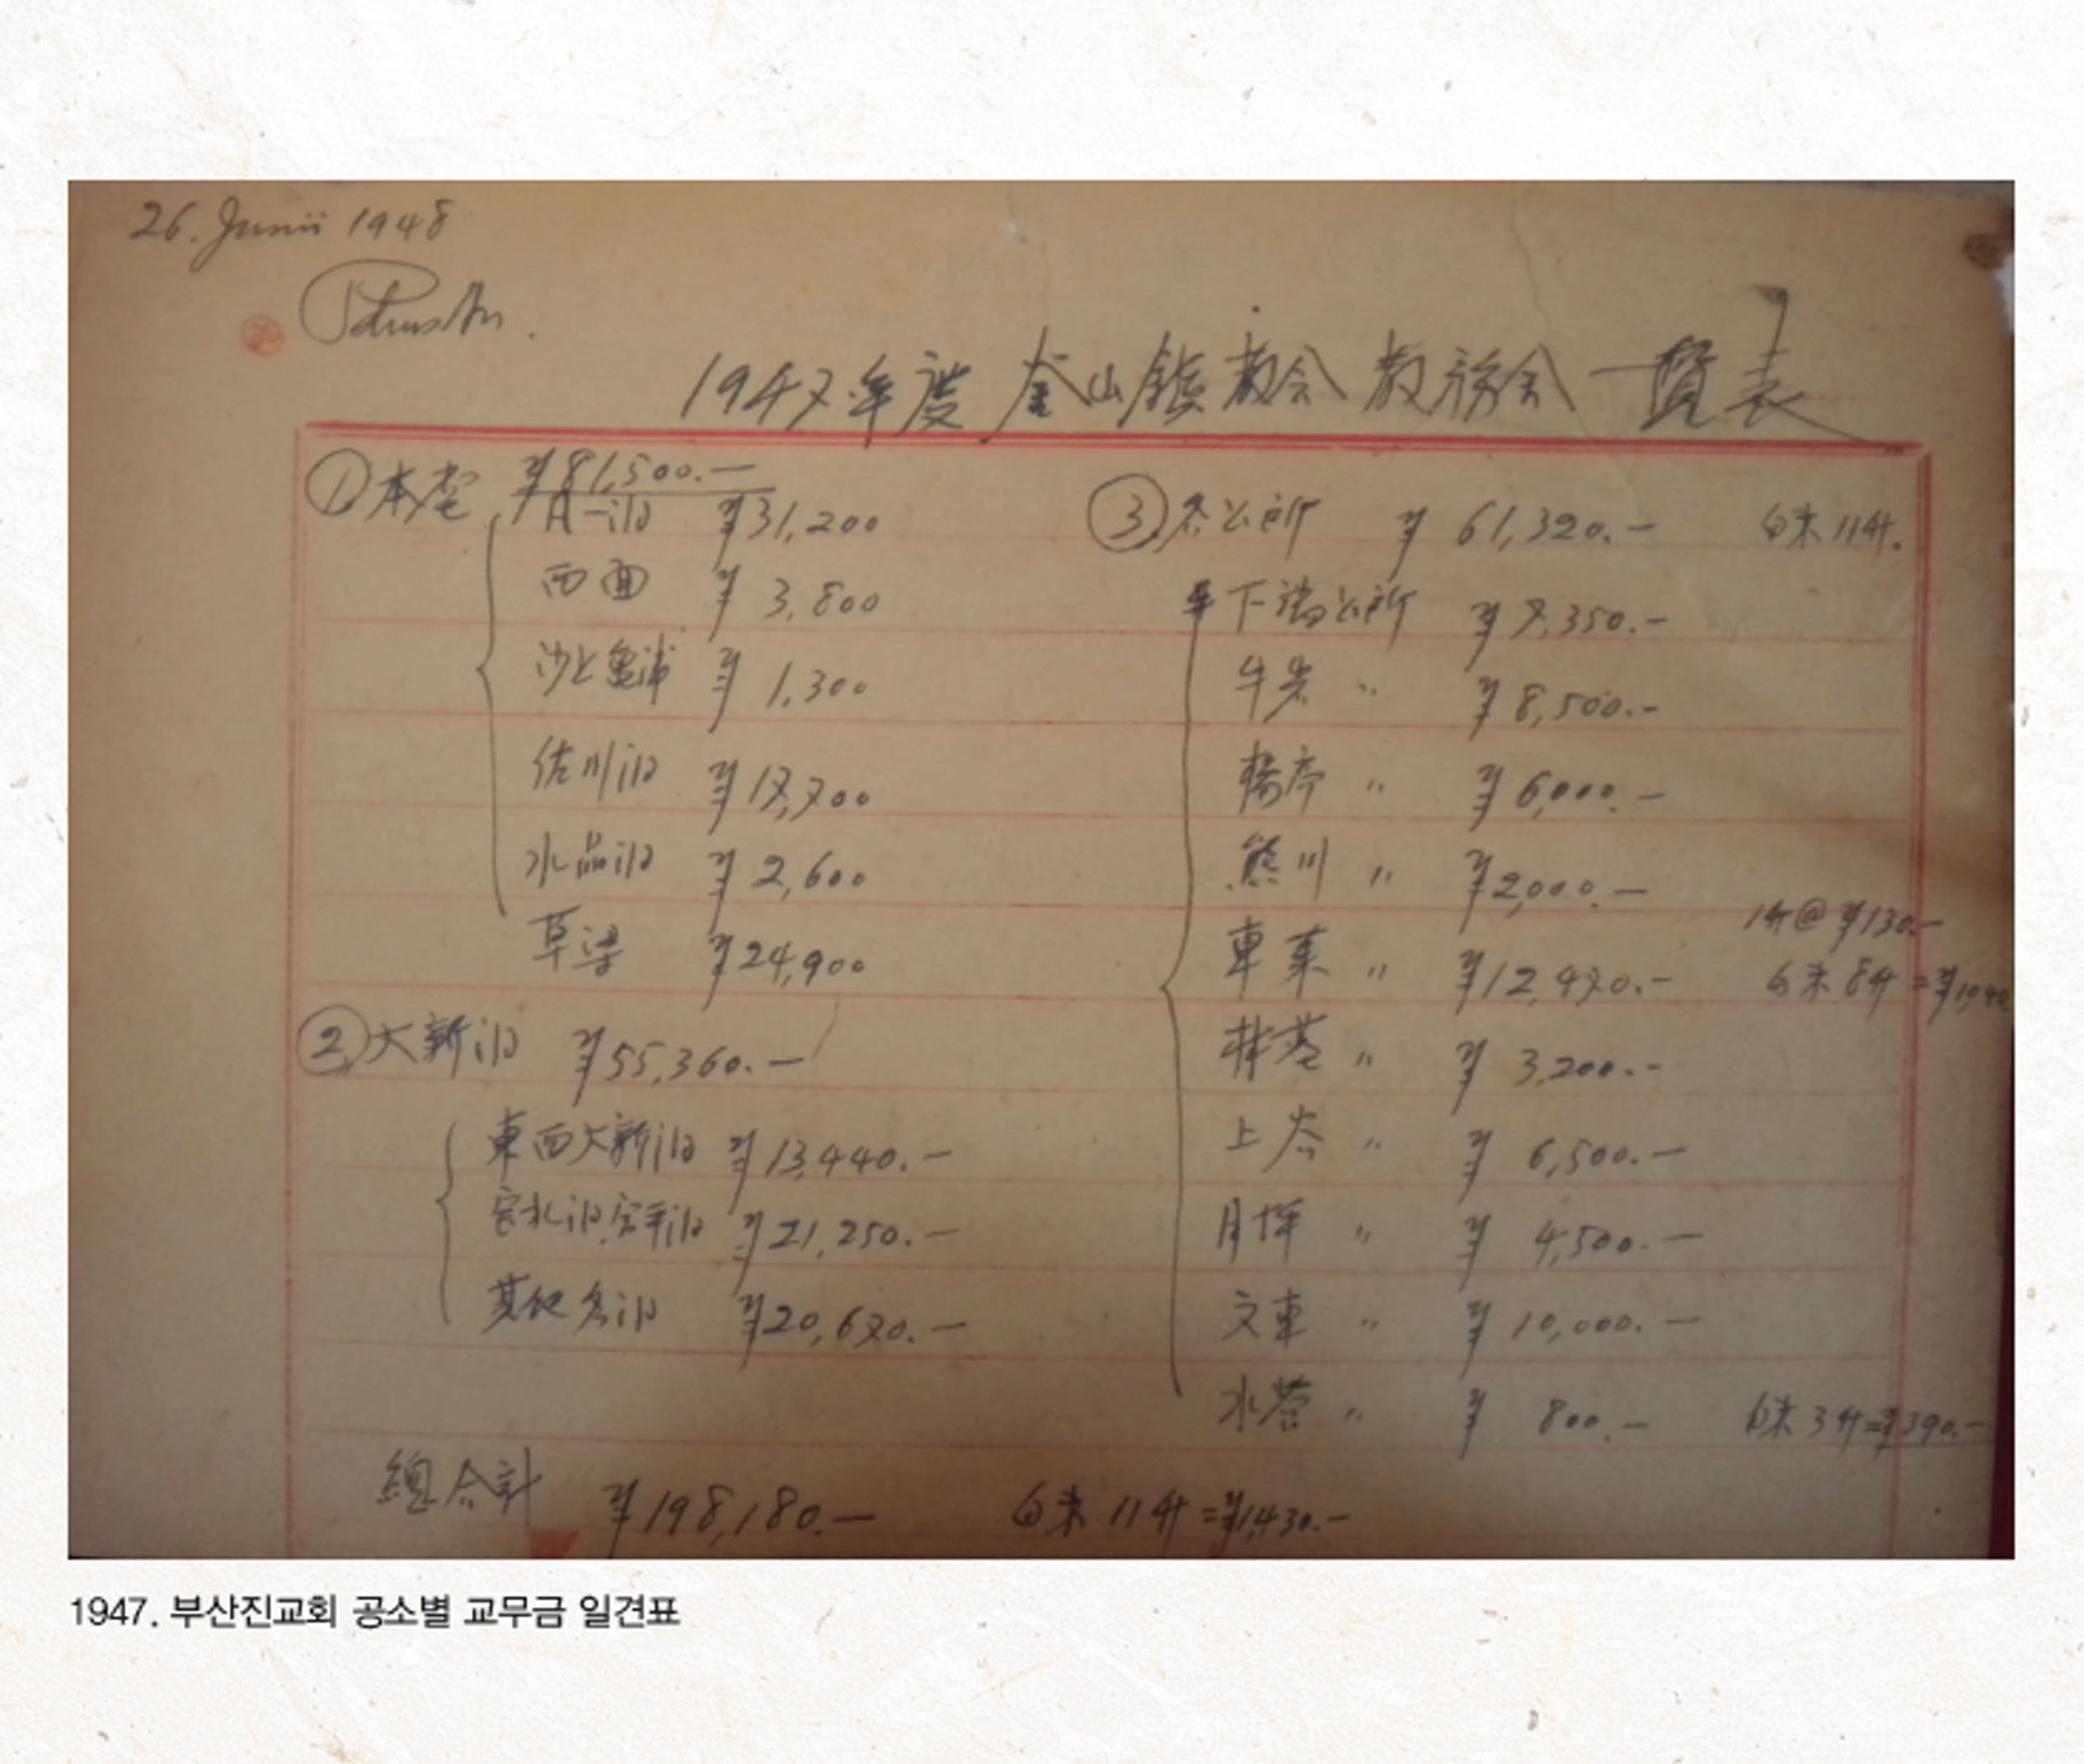 26. Junii 1948
1947年度 釜山鎮教会 教務金 一覧表
① 本堂 ¥81,500.—
凡一洞 ¥31,200
西面 ¥3,800
沙上龜浦 ¥1,300
佐川洞 ¥17,700
水晶洞 ¥2,600
草梁 ¥24,900
② 大新洞 ¥55,360.—
東西大新洞 ¥13,440.—
¥21,250.—
其他各洞 ¥20,670.—
③ 各公所 ¥61,320.— 白米 11升.
下端公所 ¥7,350.—
牛岩 〃 ¥8,500.—
亭 〃 ¥6,000.—
熊川 〃 ¥2,000.—
1升@¥130.—
東萊 〃 ¥12,470.— 白米 8升=¥1040
〃 ¥3,200.—
上谷 〃 ¥6,500.—
月坪 〃 ¥4,500.—
文東 〃 ¥10,000.—
水營 〃 ¥800.— 白米 3升=¥390.—
總合計 ¥198,180.— 白米 11升=¥1,430.—
1947. 부산진교회 공소별 교무금 일견표